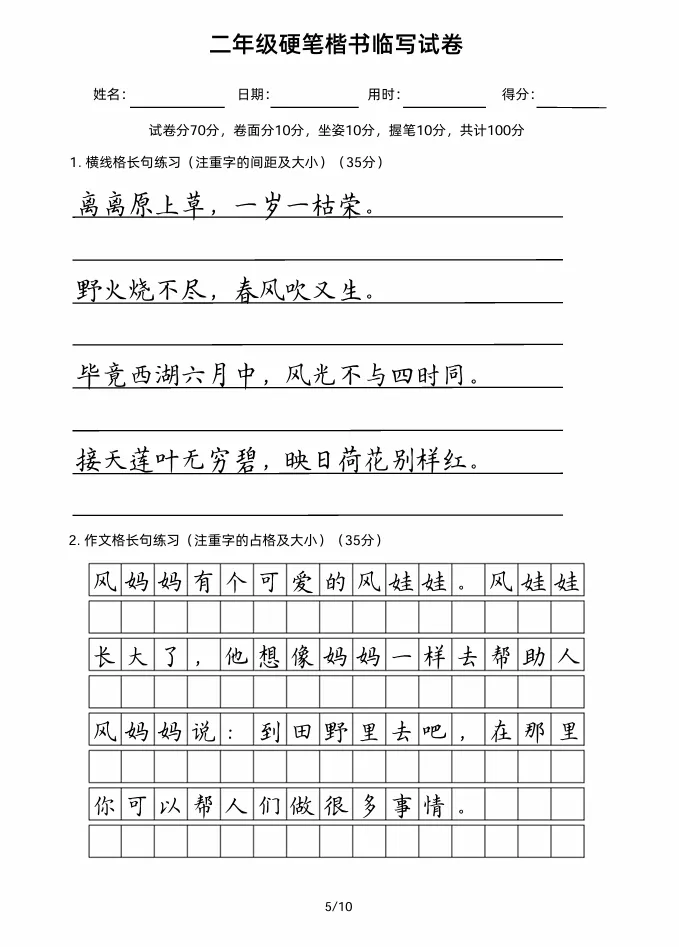 二年级硬笔楷书临写试卷
姓名： 日期： 用时： 得分：
试卷分70分，卷面分10分，坐姿10分，握笔10分，共计100分
1. 横线格长句练习（注重字的间距及大小）（35分）
离离原上草，一岁一枯荣。
野火烧不尽，春风吹又生。
毕竟西湖六月中，风光不与四时同。
接天莲叶无穷碧，映日荷花别样红。
2. 作文格长句练习（注重字的占格及大小）（35分）
风妈妈有个可爱的风娃娃。风娃娃
长大了，他想像妈妈一样去帮助人
风妈妈说：到田野里去吧，在那里
你可以帮人们做很多事情。
5/10